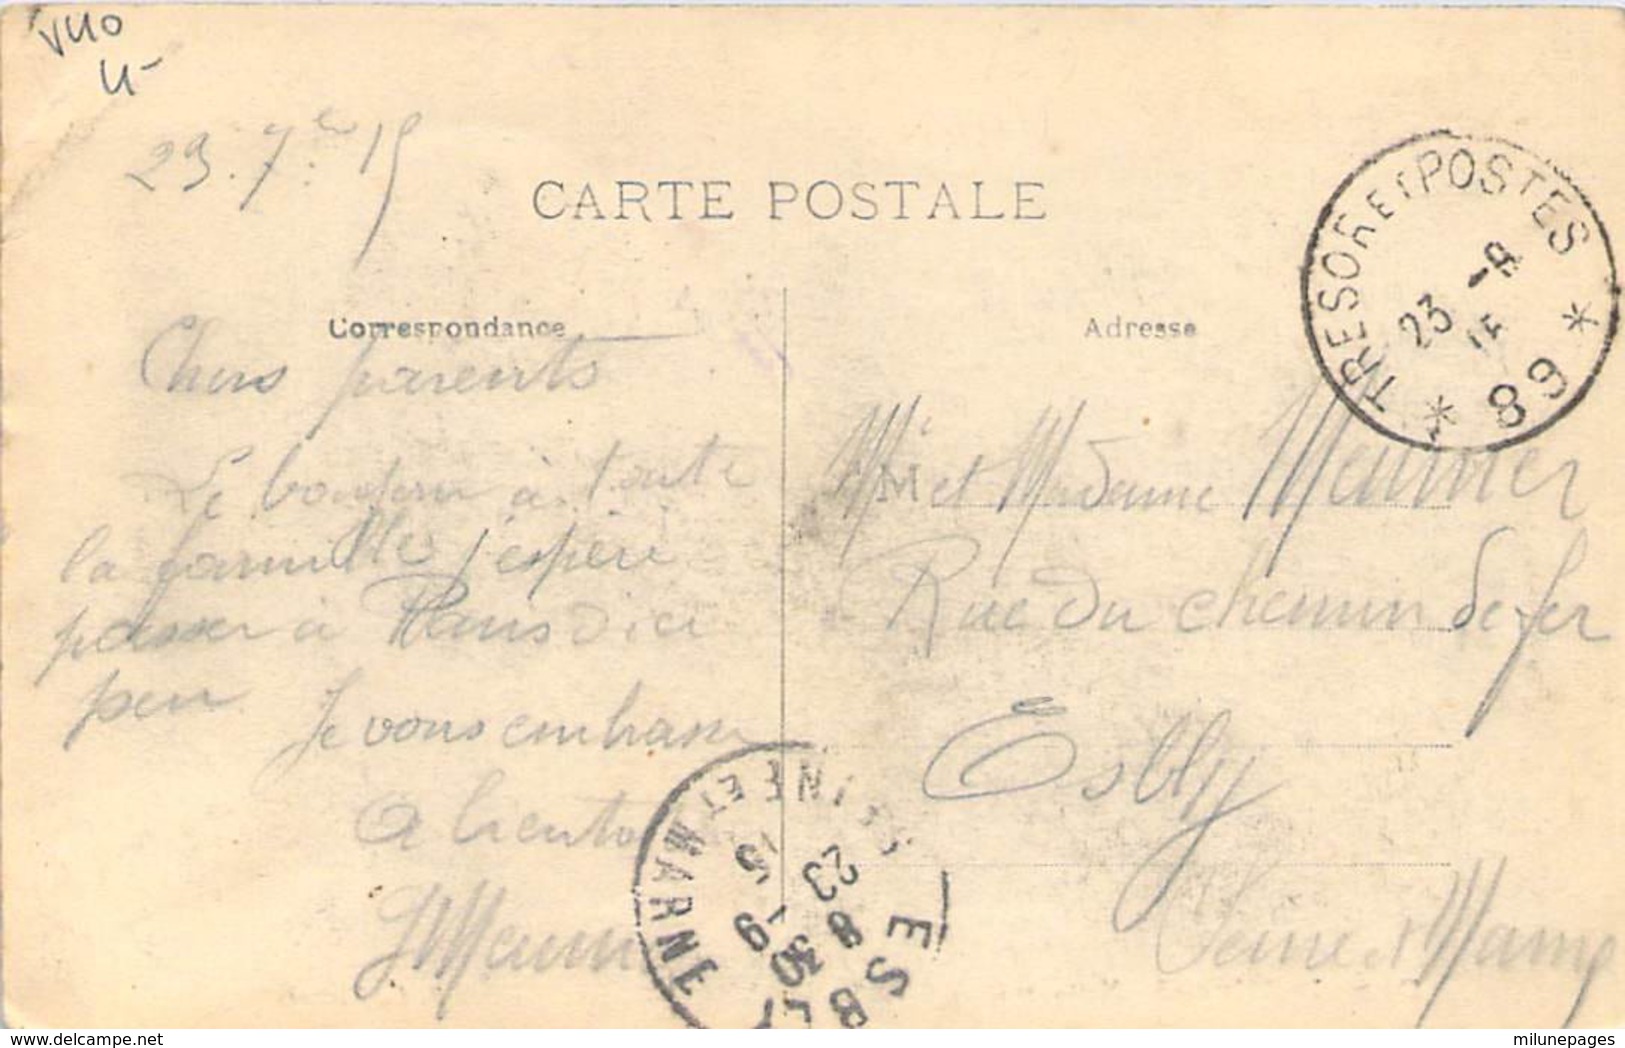 VUO
U-
23.7re 15
CARTE POSTALE
TRESOR ET POSTES
23 -9
15
* 89 *
Correspondance
Adresse
Chers parents
Le bonjour à toute
la famille j'espère
passer à Paris d'ici
peu
Je vous embrasse
A bientôt
Meunier
Mr et Madame Meunier
M
Rue du chemin de fer
Esbly
Seine et Marne
ESBLY
SEINE ET MARNE
23
9
15
delcampe.net
milunepages